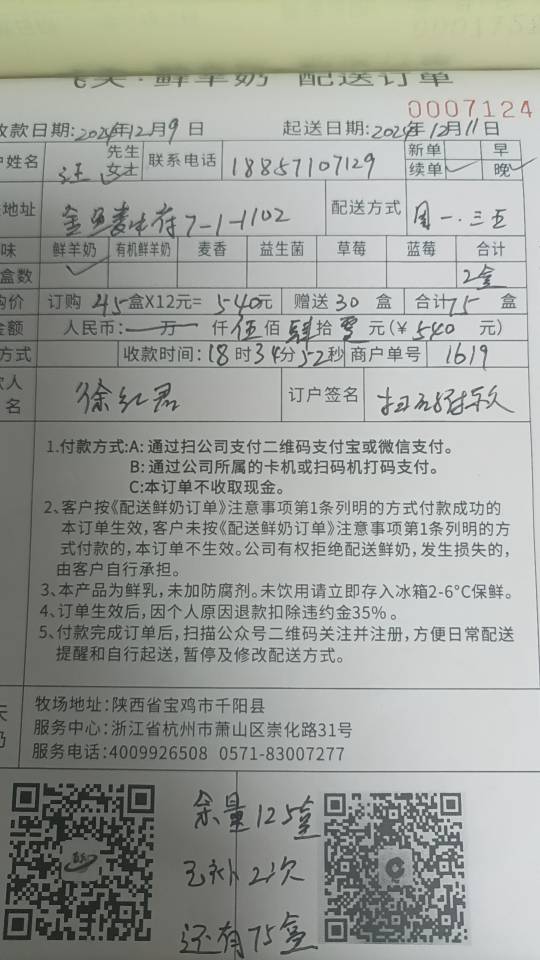 ·鲜羊奶 配送订单
0007124
收款日期:2024年12月9日 起送日期:2024年12月11日
户姓名 汪 先生 女士 联系电话 18857107129 新单 续单✓ 早 晚✓
地址 7-1-1102 配送方式 周一.三五
味 鲜羊奶✓ 有机鲜羊奶 麦香 益生菌 草莓 蓝莓 合计
盒数 2盒
购价 订购45盒X12元=540元 赠送30盒 合计75盒
金额 人民币: 万 仟伍佰肆拾零元(￥540元)
方式 收款时间:18时34分52秒 商户单号 1619
款人 名 徐红君 订户签名
1.付款方式:A:通过扫公司支付二维码支付宝或微信支付。
B:通过公司所属的卡机或扫码机打码支付。
C:本订单不收取现金。
2、客户按《配送鲜奶订单》注意事项第1条列明的方式付款成功的
本订单生效,客户未按《配送鲜奶订单》注意事项第1条列明的方
式付款的,本订单不生效。公司有权拒绝配送鲜奶,发生损失的,
由客户自行承担。
3、本产品为鲜乳,未加防腐剂。未饮用请立即存入冰箱2-6°C保鲜。
4、订单生效后,因个人原因退款扣除违约金35%。
5、付款完成订单后,扫描公众号二维码关注并注册,方便日常配送
提醒和自行起送,暂停及修改配送方式。
牧场地址:陕西省宝鸡市千阳县
服务中心:浙江省杭州市萧山区崇化路31号
奶 服务电话:4009926508 0571-83007277
余量125盒
已补2次
还有75盒